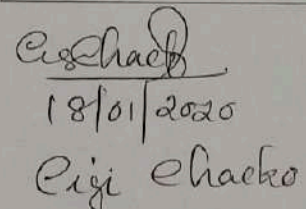 18/01/2020
Eigi Chacko